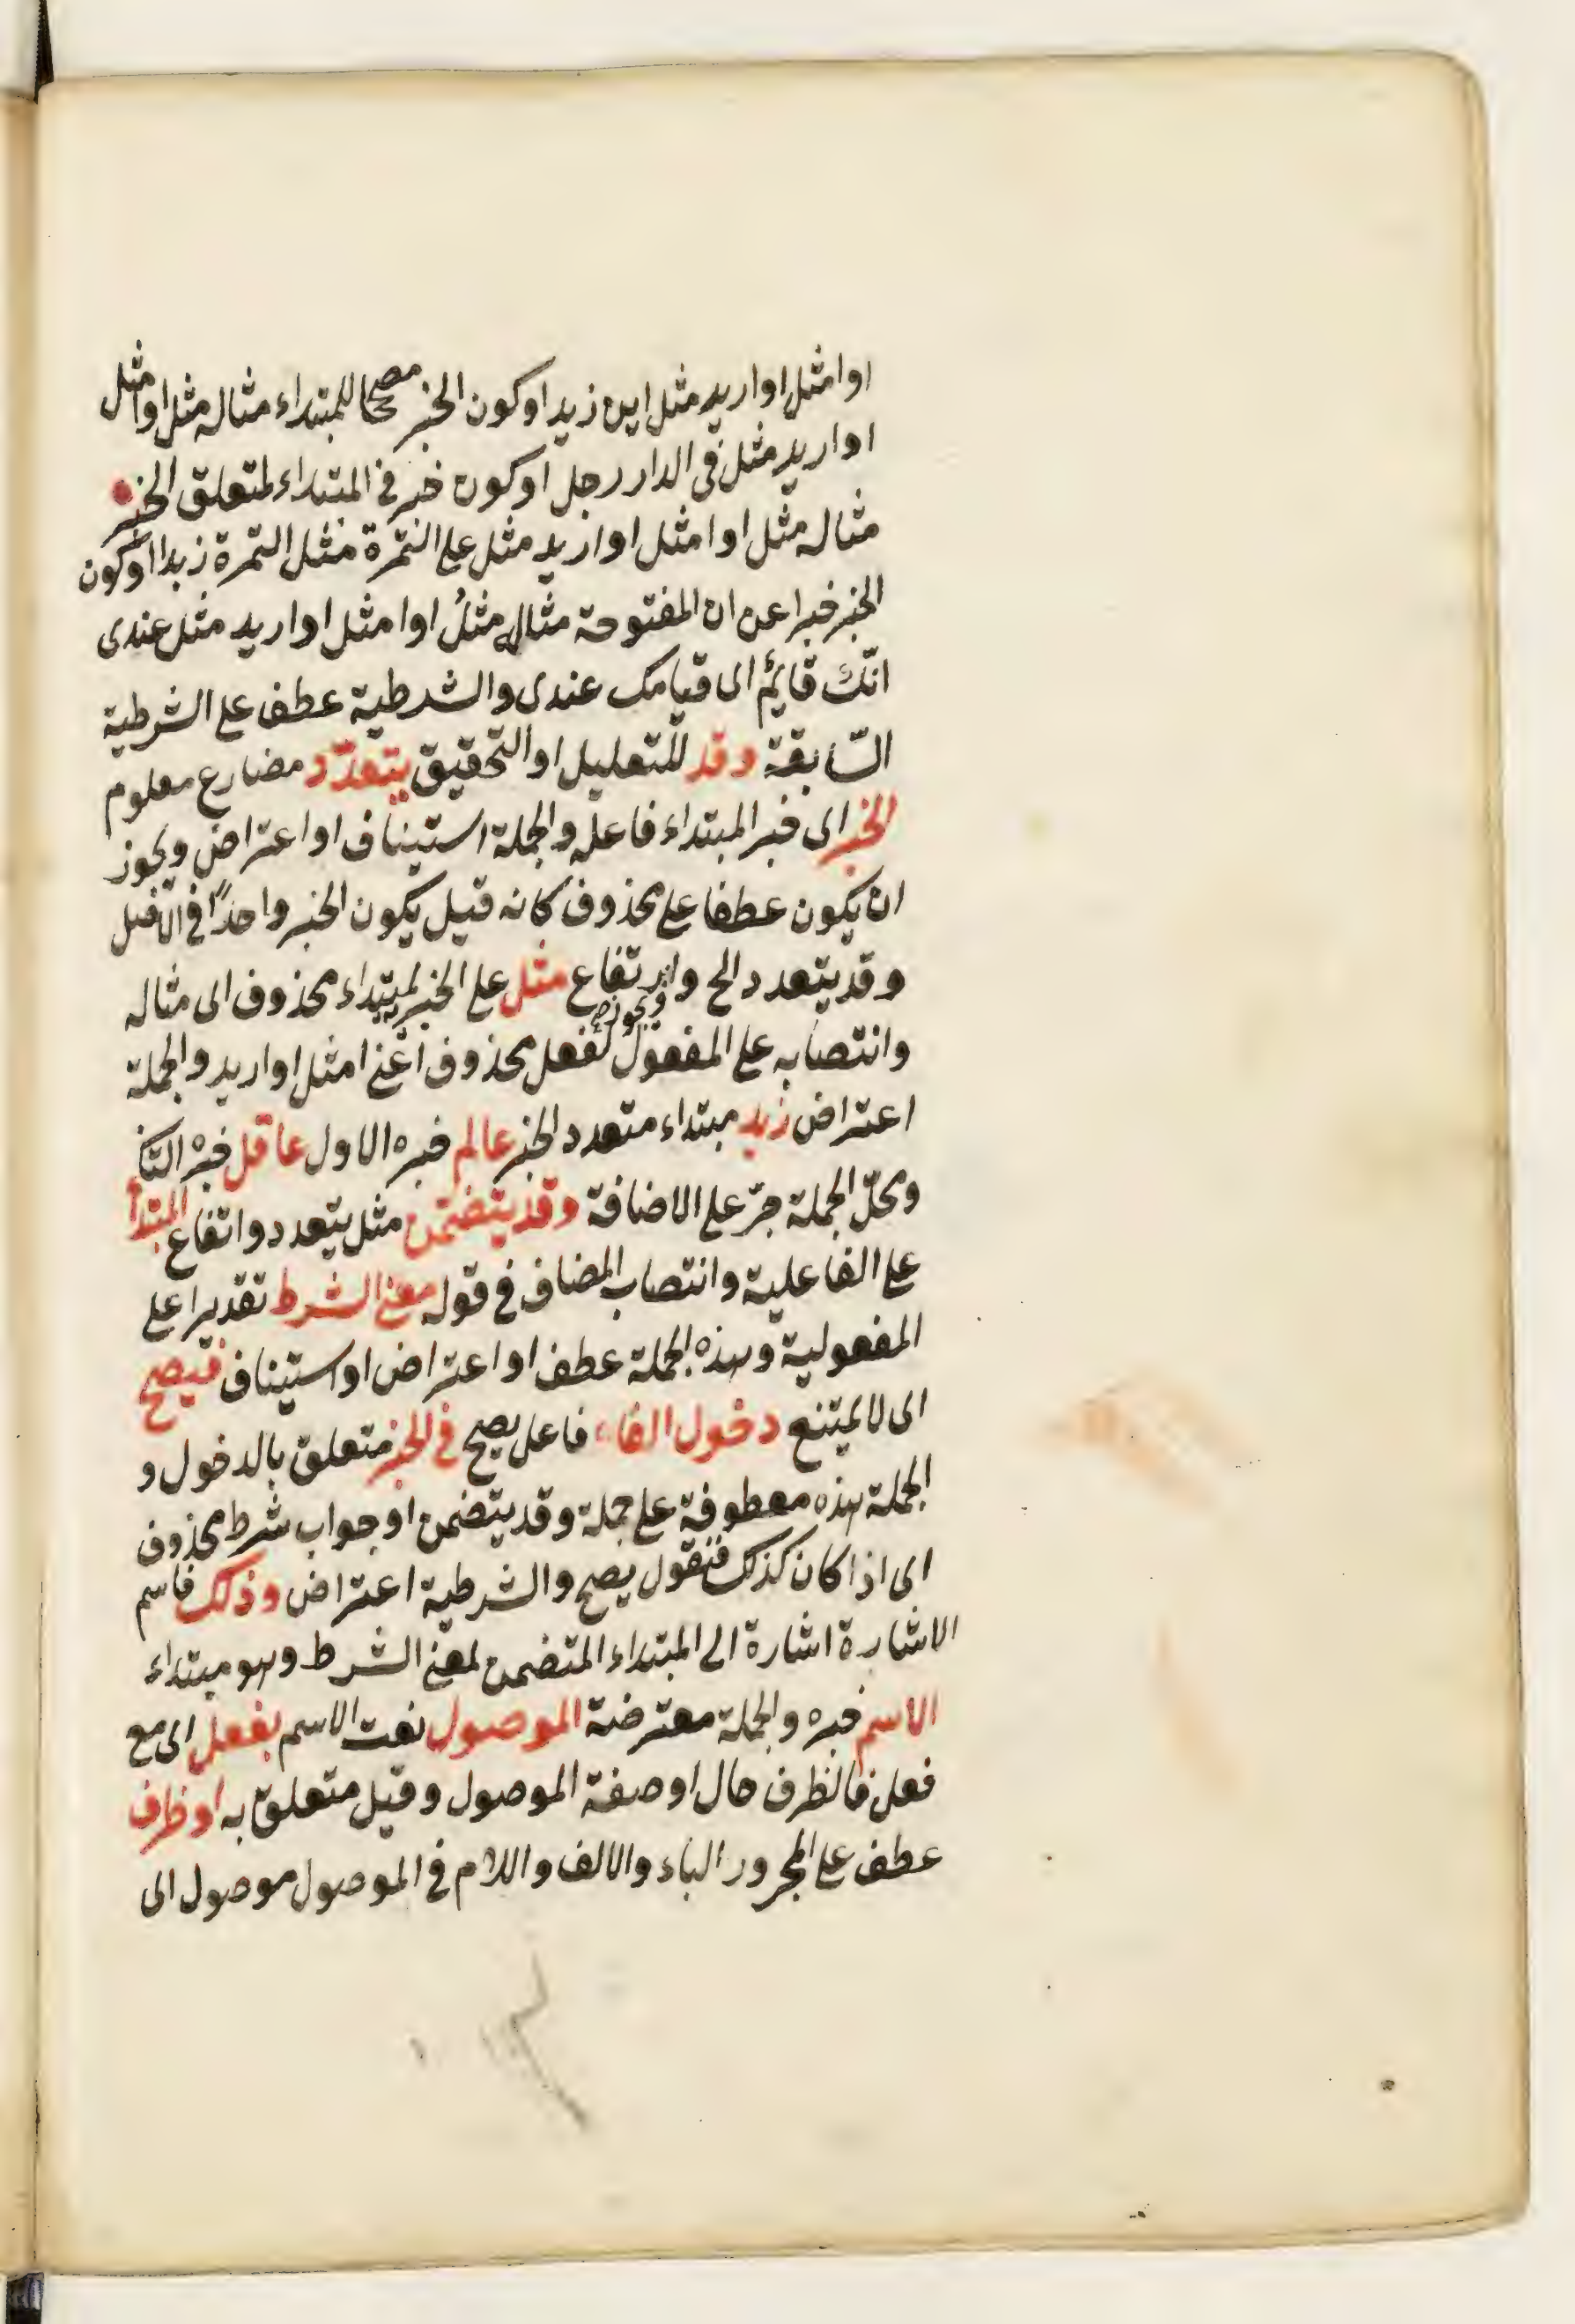 او امثل او اريد مثل اين زيد او كون الخبر مصححا للمبتداء مثاله مثل او امثل
او اريد مثل فى الدار رجل او كون خبر فى المبتداء لمتعلق الخبر
مثاله مثل او امثل او اريد مثل على التمرة مثل التمرة زبدا او كون
الخبر خبرا عن ان المفتوحة مثاله مثلُ او امثل او اريد مثل عندى
انّك قائمٌ اى قيامك عندى والشرطية عطف على الشرطية
السّابقة وقد للتعليل او التحقيق يتعدّد مضارع معلوم
الخبر اى خبر المبتداء فاعله والجملة استيناف او اعتراض ويجوز
ان يكون عطفا على محذوف كانه قيل يكون الخبر واحدًا فى الاصل
وقد يتعدد الخ وارتفاع مثل على الخبرية لمبتداء محذوف اى مثاله
وانتصابه على المفعول لفعل محذوف اعنى امثل او اريد والجملة
اعتراض زيد مبتداء متعدد الخبر عالم خبره الاول عاقل خبره الثانى
ومحلّ الجملة جرّ على الاضافة وقد يتضمن مثل يتعدد وارتفاع المبتدأ
على الفاعلية وانتصاب المضاف فى قوله معنى الشرط تقديرا على
المفعولية وهذه الجملة عطف او اعتراض او استيناف فيصح
اى لا يمتنع دخول الفاء فاعل يصح فى الخبر متعلق بالدخول و
الجملة هذه معطوفة على جملة وقد يتضمن او جواب شرط محذوف
اى اذا كان كذلك فنقول يصح والشرطية اعتراض وذلك فاسم
الاشارة اشارة الى المبتداء المتضمن لمعنى الشرط وهو مبتداء
الاسم خبره والجملة معترضة الموصول نعت الاسم بفعل اى مع
فعل فالظرف حال او صفة الموصول وقيل متعلق به او ظرف
عطف على المجرور الباء والالف واللام فى الموصول موصول اى